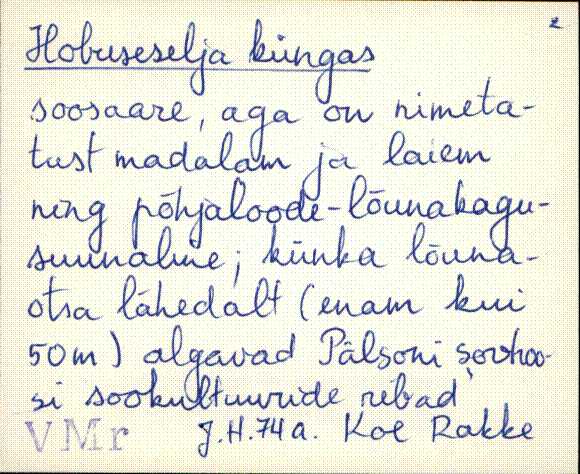 2
Hobuseselja küngas
soosaare, aga on nimeta-
tust madalam ja laiem
ning põhjaloode-lõunakagu-
suunaline; künka lõuna-
otsa lähedalt (enam kui
50m) algavad Pälsoni sovhoo-
si sookultuuride ribad
VMr J.H.74a. Koe Rakke